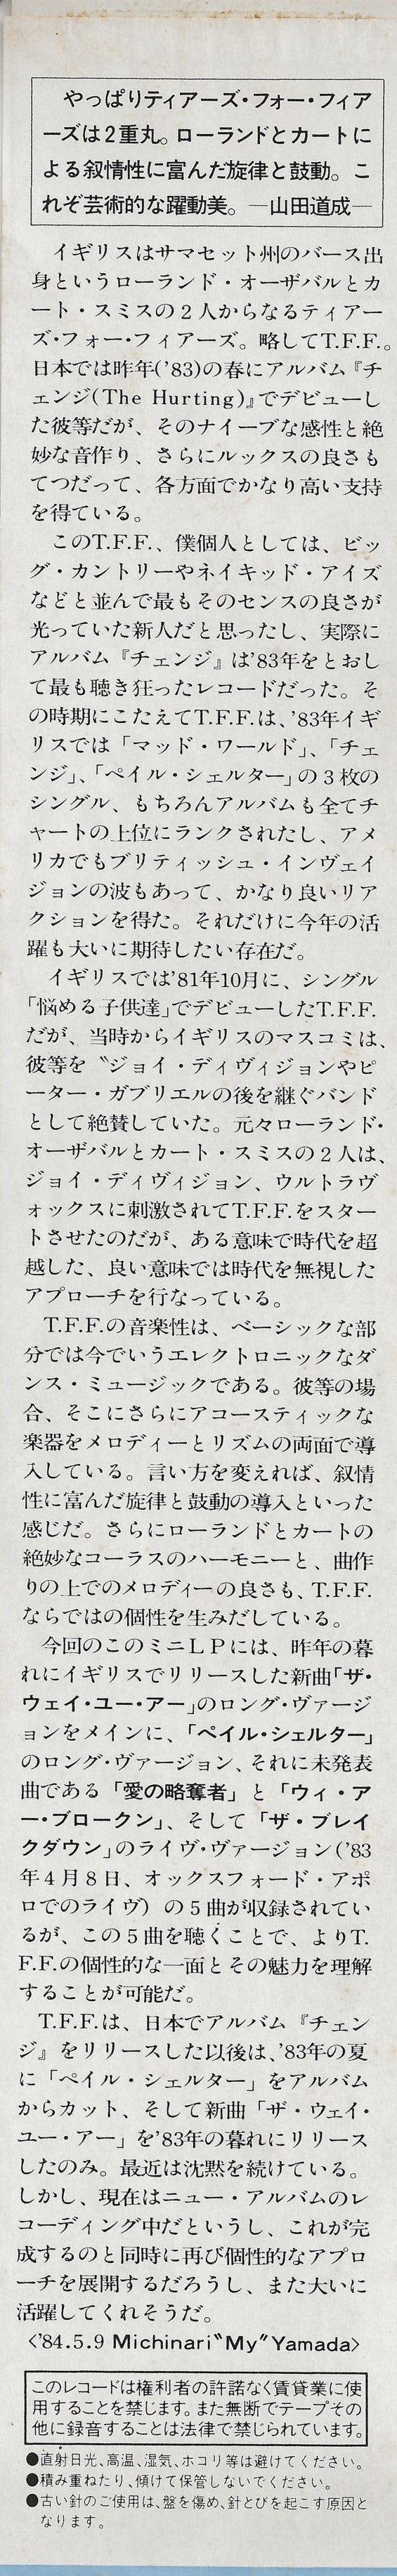 やっぱりティアーズ・フォー・フィア
ーズは2重丸。ローランドとカートに
よる叙情性に富んだ旋律と鼓動。こ
れぞ芸術的な躍動美。—山田道成—
イギリスはサマセット州のバース出
身というローランド・オーザバルとカ
ート・スミスの2人からなるティアー
ズ・フォー・フィアーズ。略してT.F.F.。
日本では昨年('83)の春にアルバム『チ
ェンジ(The Hurting)』でデビューし
た彼等だが、そのナイーブな感性と絶
妙な音作り、さらにルックスの良さも
てつだって、各方面でかなり高い支持
を得ている。
このT.F.F.、僕個人としては、ビッ
グ・カントリーやネイキッド・アイズ
などと並んで最もそのセンスの良さが
光っていた新人だと思ったし、実際に
アルバム『チェンジ』は'83年をとおし
て最も聴き狂ったレコードだった。そ
の時期にこたえてT.F.F.は、'83年イギ
リスでは「マッド・ワールド」、「チェ
ンジ」、「ペイル・シェルター」の3枚の
シングル、もちろんアルバムも全てチ
ャートの上位にランクされたし、アメ
リカでもブリティッシュ・インヴェイ
ジョンの波もあって、かなり良いリア
クションを得た。それだけに今年の活
躍も大いに期待したい存在だ。
イギリスでは'81年10月に、シングル
「悩める子供達」でデビューしたT.F.F.
だが、当時からイギリスのマスコミは、
彼等を〝ジョイ・ディヴィジョンやピ
ーター・ガブリエルの後を継ぐバンド
として絶賛していた。元々ローランド・
オーザバルとカート・スミスの2人は、
ジョイ・ディヴィジョン、ウルトラヴ
ォックスに刺激されてT.F.F.をスター
トさせたのだが、ある意味で時代を超
越した、良い意味では時代を無視した
アプローチを行なっている。
T.F.F.の音楽性は、ベーシックな部
分では今でいうエレクトロニックなダ
ンス・ミュージックである。彼等の場
合、そこにさらにアコースティックな
楽器をメロディーとリズムの両面で導
入している。言い方を変えれば、叙情
性に富んだ旋律と鼓動の導入といった
感じだ。さらにローランドとカートの
絶妙なコーラスのハーモニーと、曲作
りの上でのメロディーの良さも、T.F.F.
ならではの個性を生みだしている。
今回のこのミニLPには、昨年の暮
れにイギリスでリリースした新曲「ザ・
ウェイ・ユー・アー」のロング・ヴァージ
ョンをメインに、「ペイル・シェルター」
のロング・ヴァージョン、それに未発表
曲である「愛の略奪者」と「ウィ・ア
ー・ブロークン」、そして「ザ・ブレイ
クダウン」のライヴ・ヴァージョン('83
年4月8日、オックスフォード・アポ
ロでのライヴ)の5曲が収録されてい
るが、この5曲を聴くことで、よりT.
F.F.の個性的な一面とその魅力を理解
することが可能だ。
T.F.F.は、日本でアルバム『チェン
ジ』をリリースした以後は、'83年の夏
に「ペイル・シェルター」をアルバム
からカット、そして新曲「ザ・ウェイ・
ユー・アー」を'83年の暮れにリリース
したのみ。最近は沈黙を続けている。
しかし、現在はニュー・アルバムのレ
コーディング中だというし、これが完
成するのと同時に再び個性的なアプロ
ーチを展開するだろうし、また大いに
活躍してくれそうだ。
〈'84.5.9 Michinari〝My〟Yamada〉
このレコードは権利者の許諾なく賃貸業に使
用することを禁じます。また無断でテープその
他に録音することは法律で禁じられています。
●直射日光、高温、湿気、ホコリ等は避けてください。
●積み重ねたり、傾けて保管しないでください。
●古い針のご使用は、盤を傷め、針とびを起こす原因と
なります。